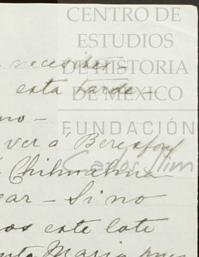 CENTRO DE
ESTUDIOS
DE HISTORIA
DE MÉXICO
FUNDACIÓN
Carlos Slim
necesitas -
esta tarde -
no -
ver a Beresford
Chihuahua
ar - Si no
os este late
Maria